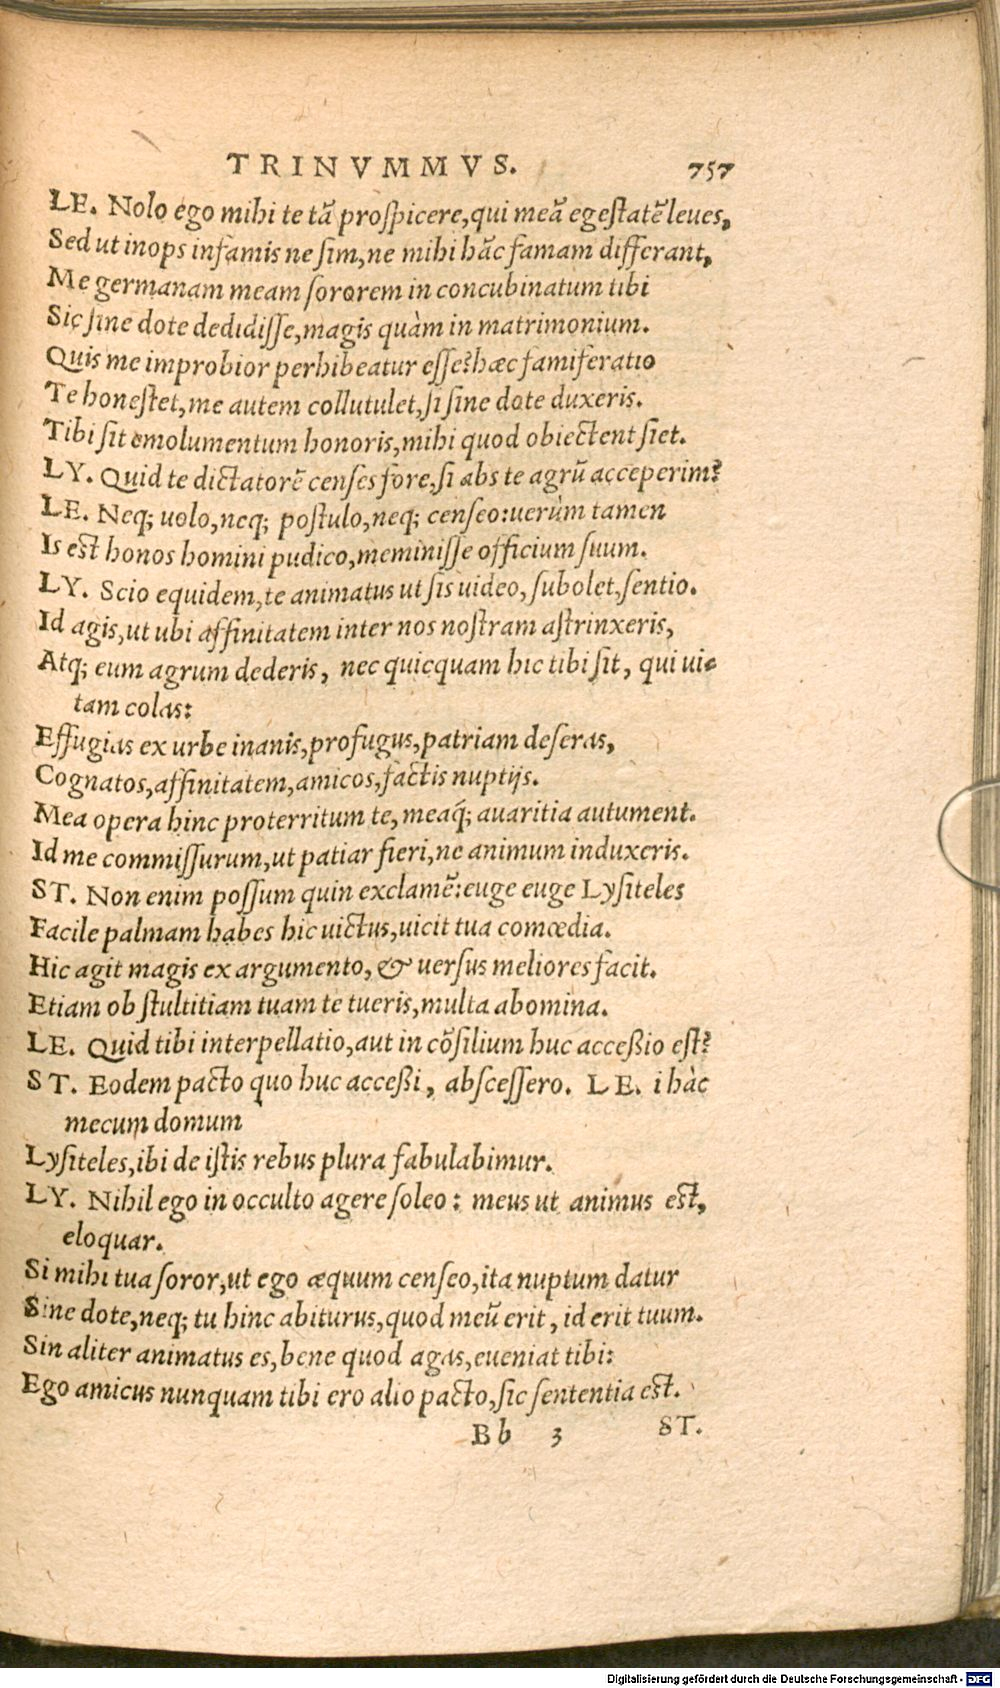 TRINVMMVS. 757
LE. Nolo ego mihi te tā prospicere,qui meā egestatē leues,
Sed ut inops infamis ne sim,ne mihi hāc famam differant,
Me germanam meam sororem in concubinatum tibi
Sic sine dote dedidisse,magis quàm in matrimonium.
Quis me improbior perhibeatur esse?hæc famiferatio
Te honestet,me autem collutulet,si sine dote duxeris.
Tibi sit emolumentum honoris,mihi quod obiectent siet.
LY. Quid te dictatorē censes fore,si abs te agrū acceperim?
LE. Neq; uolo,neq; postulo,neq; censeo:uerùm tamen
Is est honos homini pudico,meminisse officium suum.
LY. Scio equidem,te animatus ut sis uideo, subolet,sentio.
Id agis,ut ubi affinitatem inter nos nostram astrinxeris,
Atq; eum agrum dederis, nec quicquam hic tibi sit, qui ui-
tam colas:
Effugias ex urbe inanis,profugus,patriam deseras,
Cognatos,affinitatem,amicos,factis nuptijs.
Mea opera hinc proterritum te, meaq́; auaritia autument.
Id me commissurum,ut patiar fieri,ne animum induxeris.
ST. Non enim possum quin exclamē:euge euge Lysiteles
Facile palmam habes hic uictus,uicit tua comœdia.
Hic agit magis ex argumento, & uersus meliores facit.
Etiam ob stultitiam tuam te tueris,multa abomina.
LE. Quid tibi interpellatio,aut in cōsilium huc accessio est?
ST. Eodem pacto quo huc accessi, abscessero. LE. i hàc
mecum domum
Lysiteles,ibi de istis rebus plura fabulabimur.
LY. Nihil ego in occulto agere soleo: meus ut animus est,
eloquar.
Si mihi tua soror,ut ego æquum censeo,ita nuptum datur
Sine dote,neq; tu hinc abiturus,quod meū erit, id erit tuum.
Sin aliter animatus es,bene quod agas,eueniat tibi:
Ego amicus nunquam tibi ero alio pacto,sic sententia est.
Bb 3 ST.
Digitalisierung gefördert durch die Deutsche Forschungsgemeinschaft - DFG